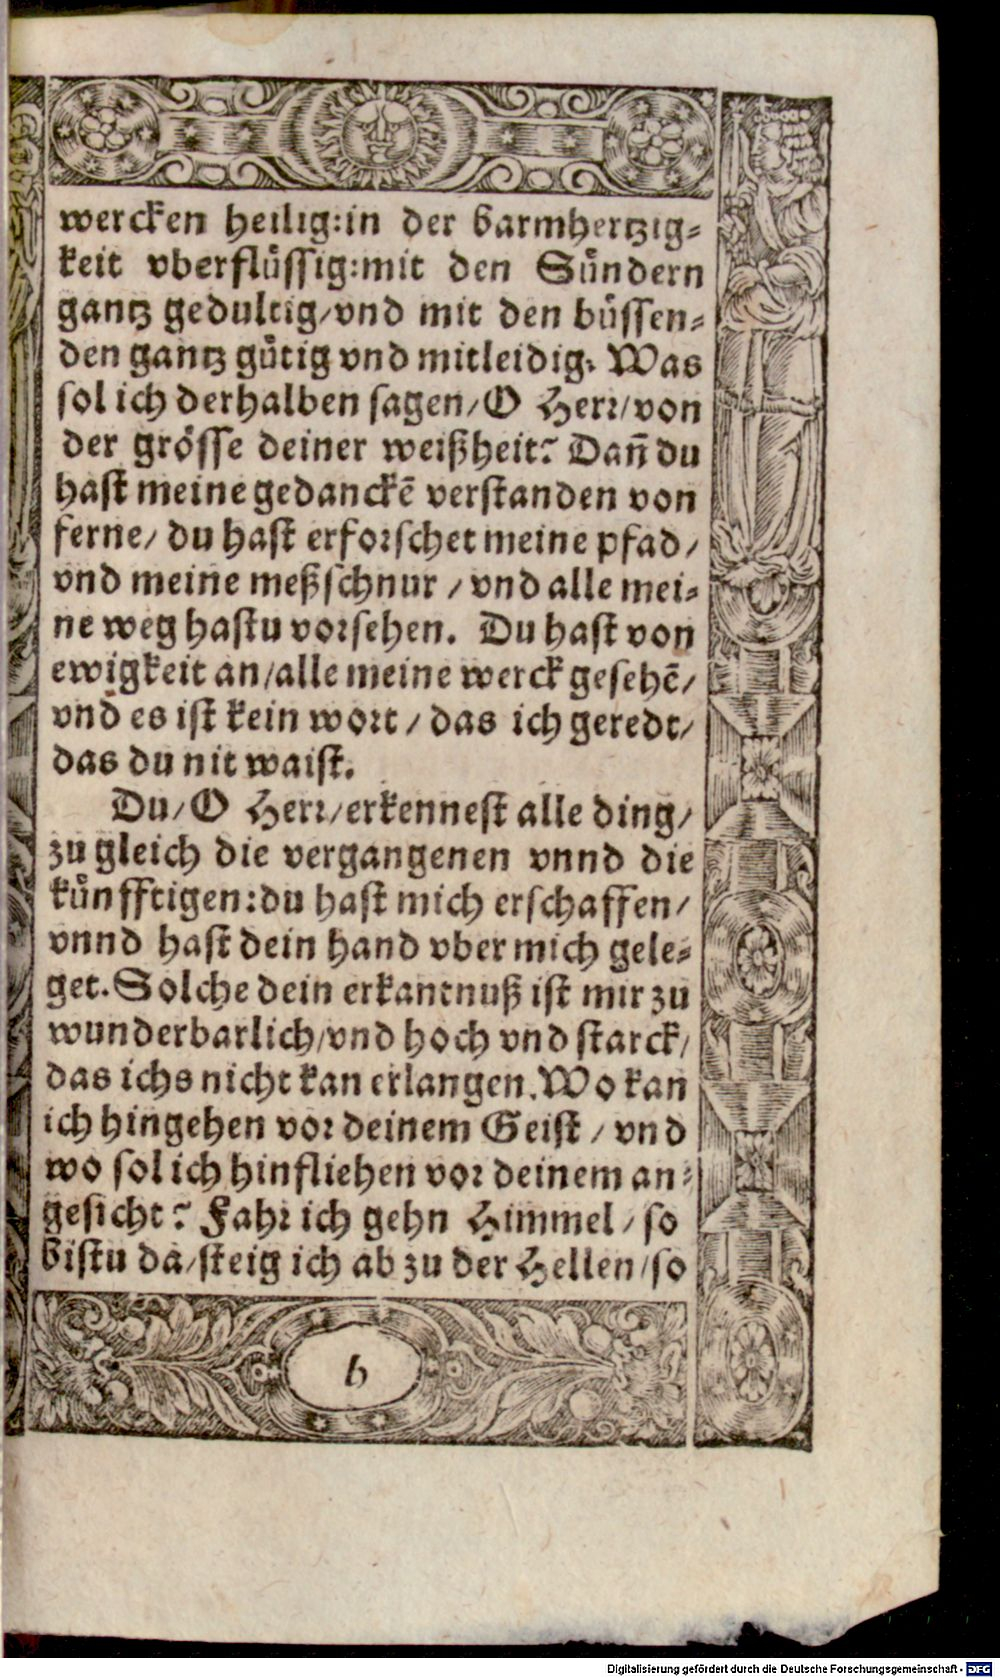 wercken heilig:in der barmhertzig⸗
keit vberflüssig:mit den Sündern
gantz gedultig/vnd mit den büssen⸗
den gantz gütig vnd mitleidig. Was
sol ich derhalben sagen/O Herr/von
der grösse deiner weißheit? Dañ du
hast meine gedanckẽ verstanden von
ferne/ du hast erforschet meine pfad/
vnd meine meßschnur / vnd alle mei⸗
ne weg hastu vorsehen. Du hast von
ewigkeit an/alle meine werck gesehẽ/
vnd es ist kein wort / das ich geredt/
das du nit waist.
Du/O Herr/erkennest alle ding/
zu gleich die vergangenen vnnd die
künfftigen:du hast mich erschaffen/
vnnd hast dein hand vber mich gele⸗
get. Solche dein erkantnuß ist mir zu
wunderbarlich/vnd hoch vnd starck/
das ichs nicht kan erlangen. Wo kan
ich hingehen vor deinem Geist / vnd
wo sol ich hinfliehen vor deinem an⸗
gesicht? Fahr ich gehn Himmel / so
bistu da/steig ich ab zu der Hellen/so
b
Digitalisierung gefördert durch die Deutsche Forschungsgemeinschaft - DFG